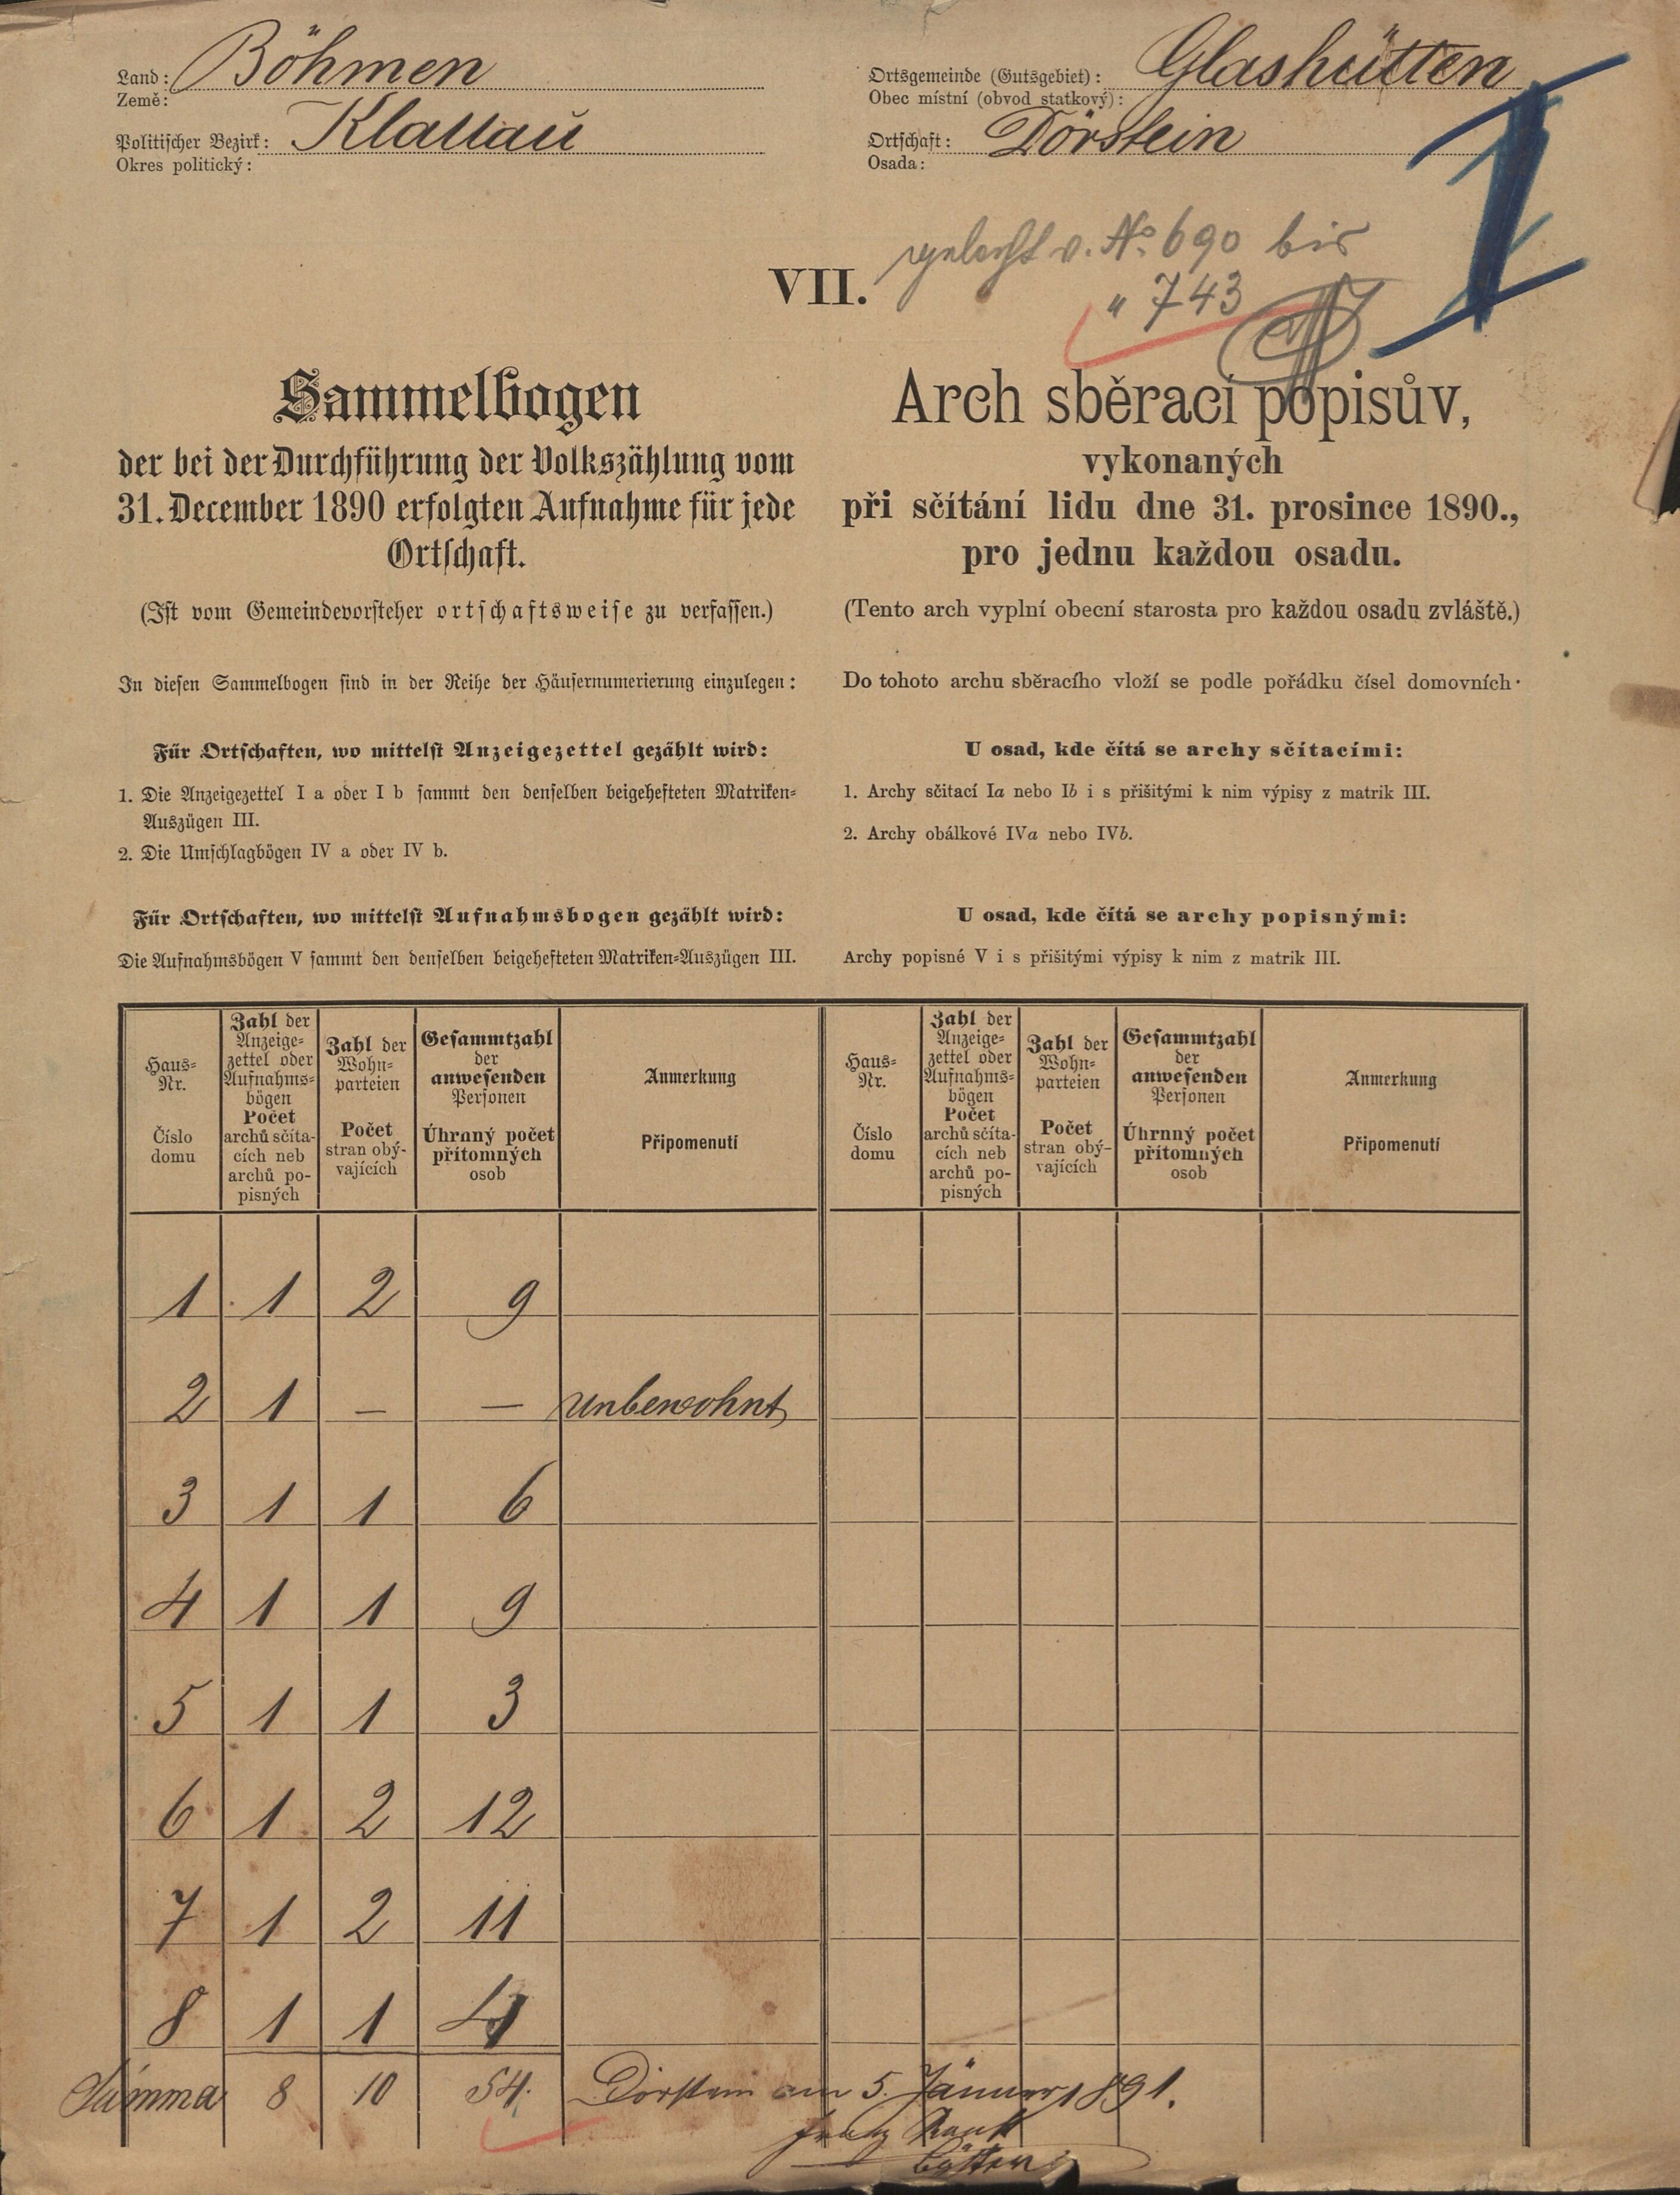 Land: Böhmen
Země:
Politischer Bezirk: Klattau
Okres politický:
Ortsgemeinde (Gutsgebiet): Glashütten
Obec místní (obvod statkový):
Ortschaft: Dörstein
Osada:
I
v. No 690 bis
" 743
VII.
Sammelbogen
der bei der Durchführung der Volkszählung vom
31. December 1890 erfolgten Aufnahme für jede
Ortschaft.
(Ist vom Gemeindevorsteher ortschaftsweise zu verfassen.)
In diesen Sammelbogen sind in der Reihe der Häusernumerierung einzulegen:
Für Ortschaften, wo mittelst Anzeigezettel gezählt wird:
1. Die Anzeigezettel I a oder I b sammt den denselben beigehefteten Matriken-
Auszügen III.
2. Die Umschlagbögen IV a oder IV b.
Für Ortschaften, wo mittelst Aufnahmsbogen gezählt wird:
Die Aufnahmsbögen V sammt den denselben beigehefteten Matriken-Auszügen III.
Arch sběrací popisův,
vykonaných
při sčítání lidu dne 31. prosince 1890.,
pro jednu každou osadu.
(Tento arch vyplní obecní starosta pro každou osadu zvláště.)
Do tohoto archu sběracího vloží se podle pořádku čísel domovních·
U osad, kde čítá se archy sčítacími:
1. Archy sčitací Ia nebo Ib i s přišitými k nim výpisy z matrik III.
2. Archy obálkové IVa nebo IVb.
U osad, kde čítá se archy popisnými:
Archy popisné V i s přišitými výpisy k nim z matrik III.
Haus-
Nr.
Číslo
domu
Zahl der
Anzeige-
zettel oder
Aufnahms-
bögen
Počet
archů sčíta-
cích neb
archů po-
pisných
Zahl der
Wohn-
parteien
Počet
stran obý-
vajících
Gesammtzahl
der
anwesenden
Personen
Úhrnný počet
přítomných
osob
Anmerkung
Připomenutí
Haus-
Nr.
Číslo
domu
Zahl der
Anzeige-
zettel oder
Aufnahms-
bögen
Počet
archů sčíta-
cích neb
archů po-
pisných
Zahl der
Wohn-
parteien
Počet
stran obý-
vajících
Gesammtzahl
der
anwesenden
Personen
Úhrnný počet
přítomných
osob
Anmerkung
Připomenutí
1 1 2 9
2 1 — — unbewohnt
3 1 1 6
4 1 1 9
5 1 1 3
6 1 2 12
7 1 2 11
8 1 1 4
Summa 8 10 54. Dörstein am 5. Jänner 1891.